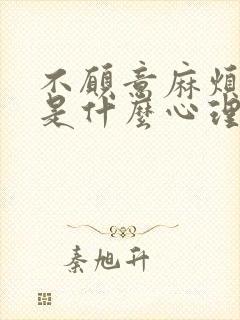 不願意麻煩
是什麼心理
秦旭升